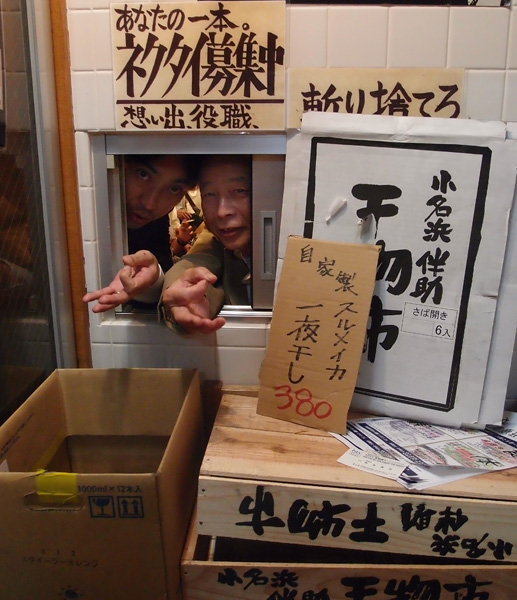 あなたの一本。
ネクタイ募集中
想い出、役職、
斬り捨てろ
小名浜 伴助
干物市
さば開き
6入
自家製 スルメイカ
一夜干し
380
1000ml×12本入
小名浜
小名浜
伴助
干物市